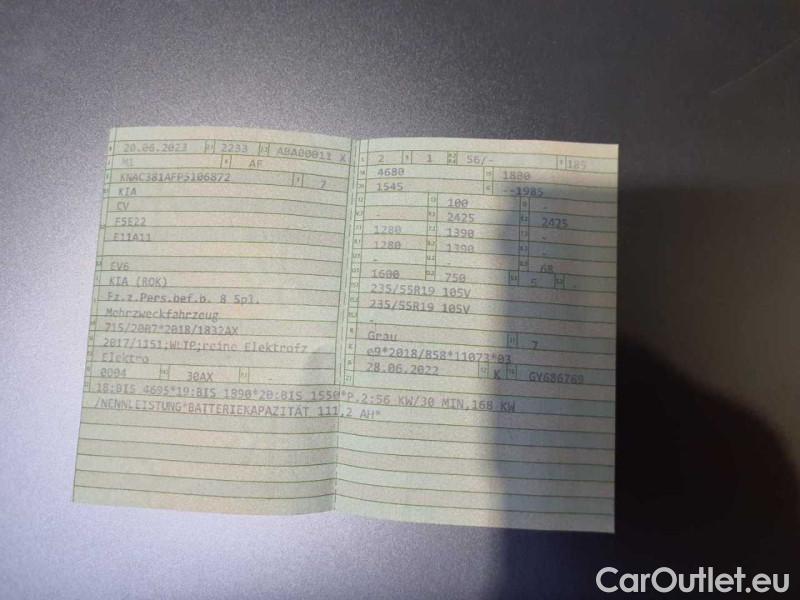 20.06.2023 2233 ABA00011 X
M1 AF
KNAC381AFP5106872 7
KIA
CV
F5E22
E11A11
EV6
KIA (ROK)
Fz.z.Pers.bef.b. 8 Spl.
Mehrzweckfahrzeug
715/2007*2018/1832AX
2017/1151;WLTP;reine Elektrofz
Elektro
0004 30AX -
2 1 56/- 185
4680 1800
1545 --1985
- 100 -
- 2425 2425
1280 1390 -
1280 1390 -
- - 68
1600 750 5 -
235/55R19 105V
235/55R19 105V
-
Grau 7
e9*2018/858*11073*03
28.06.2022 K GY686769
18:BIS 4695*19:BIS 1890*20:BIS 1550*P.2:56 KW/30 MIN,168 KW
/NENNLEISTUNG*BATTERIEKAPAZITÄT 111,2 AH*
CarOutlet.eu